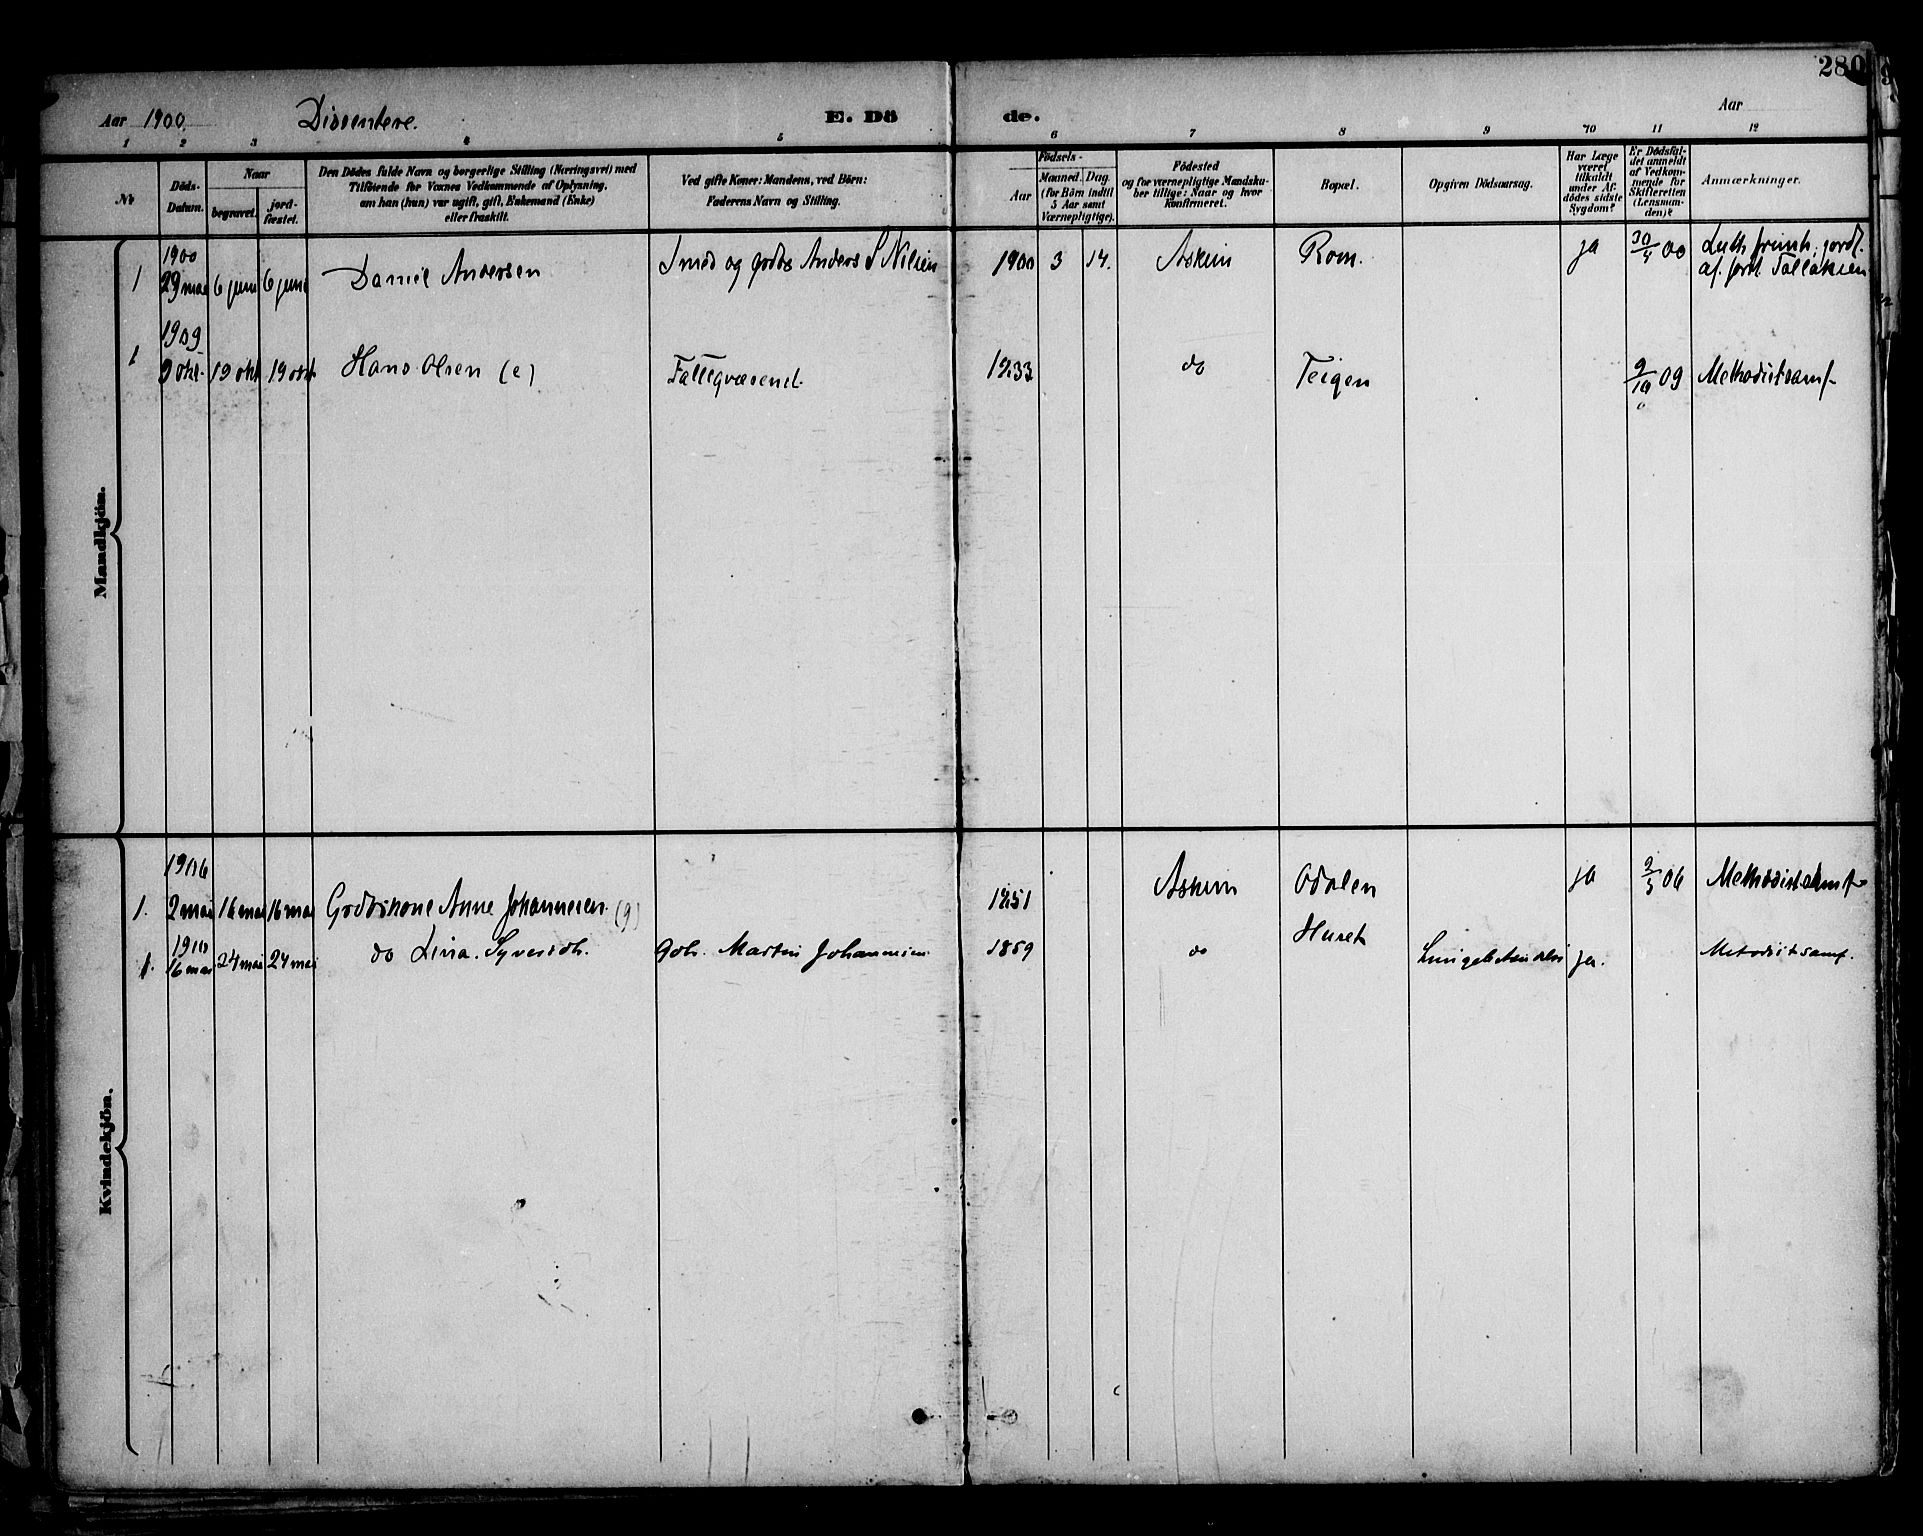 280
Aar 1900. Dissentere. E. Dö de. Aar
1 2 3 4 5 6 7 8 9 10 11 12
No
Döds-Datum.
Naar
begravet.
jord-fæstet.
Den Dödes fulde Navn og borgerlige Stilling (Næringsvei) med
Tilföiende for Voxnes Vedkommende af Oplysning,
om han (hun) var ugift, gift, Enkemand (Enke)
eller fraskilt.
Ved gifte Koner: Mandens, ved Börn:
Faderens Navn og Stilling.
Födsels-
Aar
Maaned.
Dag.
(for Börn indtil
5 Aar samt
Værnepligtige).
Födested
og for værnepligtige Mandska-
ber tillige: Naar og hvor
Konfirmeret.
Bopæl.
Opgiven Dödsaarsag.
Har Læge
været
tilkaldt
under Af-
dödes sidste
Sygdom?
Er Dödsfal-
det anmeldt
af Vedkom-
mende for
Skifteretten
(Lensman-
den)?
Anmærkninger.
Mandkjön.
1900
1 29 mai 6 juni 6 juni Daniel Andersen Smed og gbrs Anders S Nilsen 1900 3 14. Askim Rom. ja 30/5 00 Luth frimh; jordf.
af forst. Tallaksen
1909
1 9 okt. 19 okt 19 okt. Hans Olsen (e) Fattigvæsenet. 1833 do Teigen 9/10 09 Methodistsamf
Kvindekjön.
1906
1. 2 mai 16 mai 16 mai Grdbrkone Anne Johannesen (g) 1851 Askim Odalen ja 9/5 06 Methodistsamf
1910
1. 16 mai 24 mai 24 mai do Lina Syversdtr. Gbr. Martin Johannesen 1859 do Huset ja. Metodistsamf.